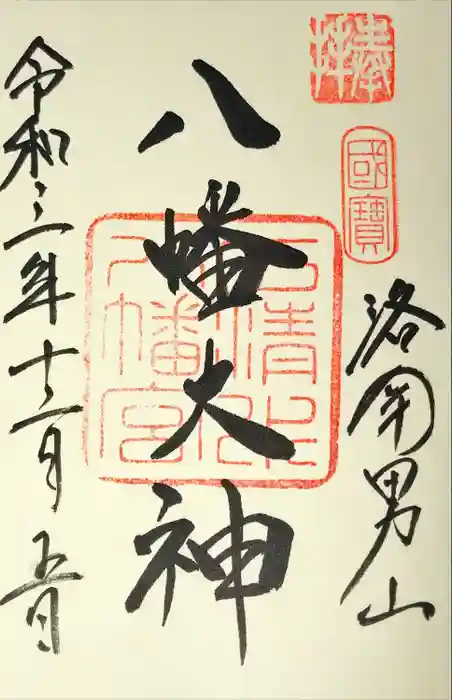 奉拝
國寶
洛南男山
八幡大神
石清水
八幡宮
令和三年十二月五日